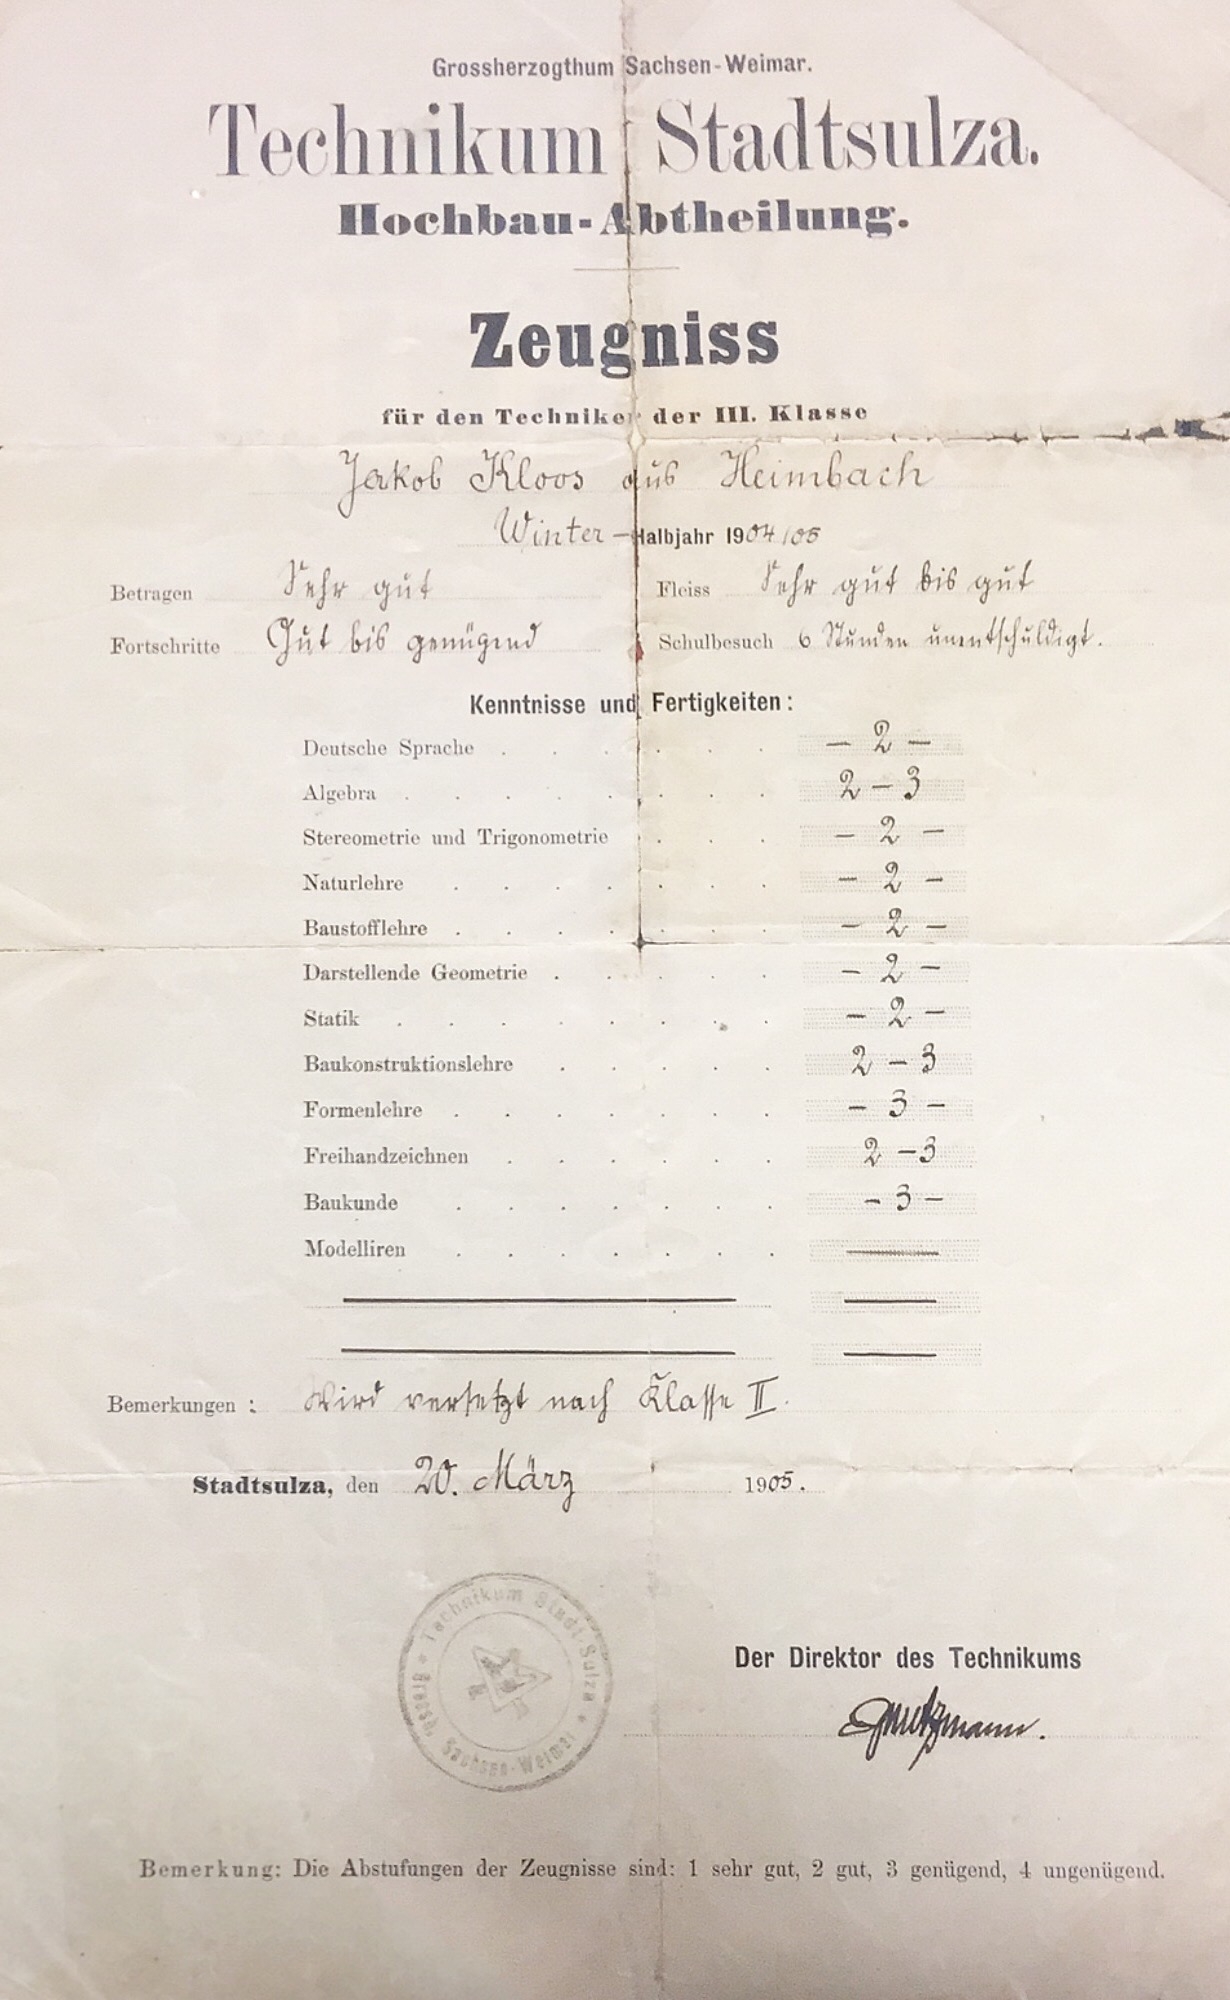 Grossherzogthum Sachsen-Weimar.
Technikum Stadtsulza.
Hochbau-Abtheilung.
Zeugniss
für den Techniker der III. Klasse
Jakob Kloos aus Heimbach
Winter-Halbjahr 1904/05
Betragen Sehr gut Fleiss Sehr gut bis gut
Fortschritte Gut bis genügend Schulbesuch 6 Stunden unentschuldigt.
Kenntnisse und Fertigkeiten:
Deutsche Sprache . . . . . . - 2 -
Algebra . . . . . . . . 2 - 3
Stereometrie und Trigonometrie . . . . - 2 -
Naturlehre . . . . . . . - 2 -
Baustofflehre . . . . . . . - 2 -
Darstellende Geometrie . . . . . - 2 -
Statik . . . . . . . . - 2 -
Baukonstruktionslehre . . . . . 2 - 3
Formenlehre . . . . . . . - 3 -
Freihandzeichnen . . . . . . 2 - 3
Baukunde . . . . . . . - 3 -
Modelliren . . . . . . . —
Bemerkungen: Wird versetzt nach Klasse II.
Stadtsulza, den 20. März 1905.
Technikum Stadt-Sulza * Grossh. Sachsen-Weimar *
Der Direktor des Technikums
Bemerkung: Die Abstufungen der Zeugnisse sind: 1 sehr gut, 2 gut, 3 genügend, 4 ungenügend.